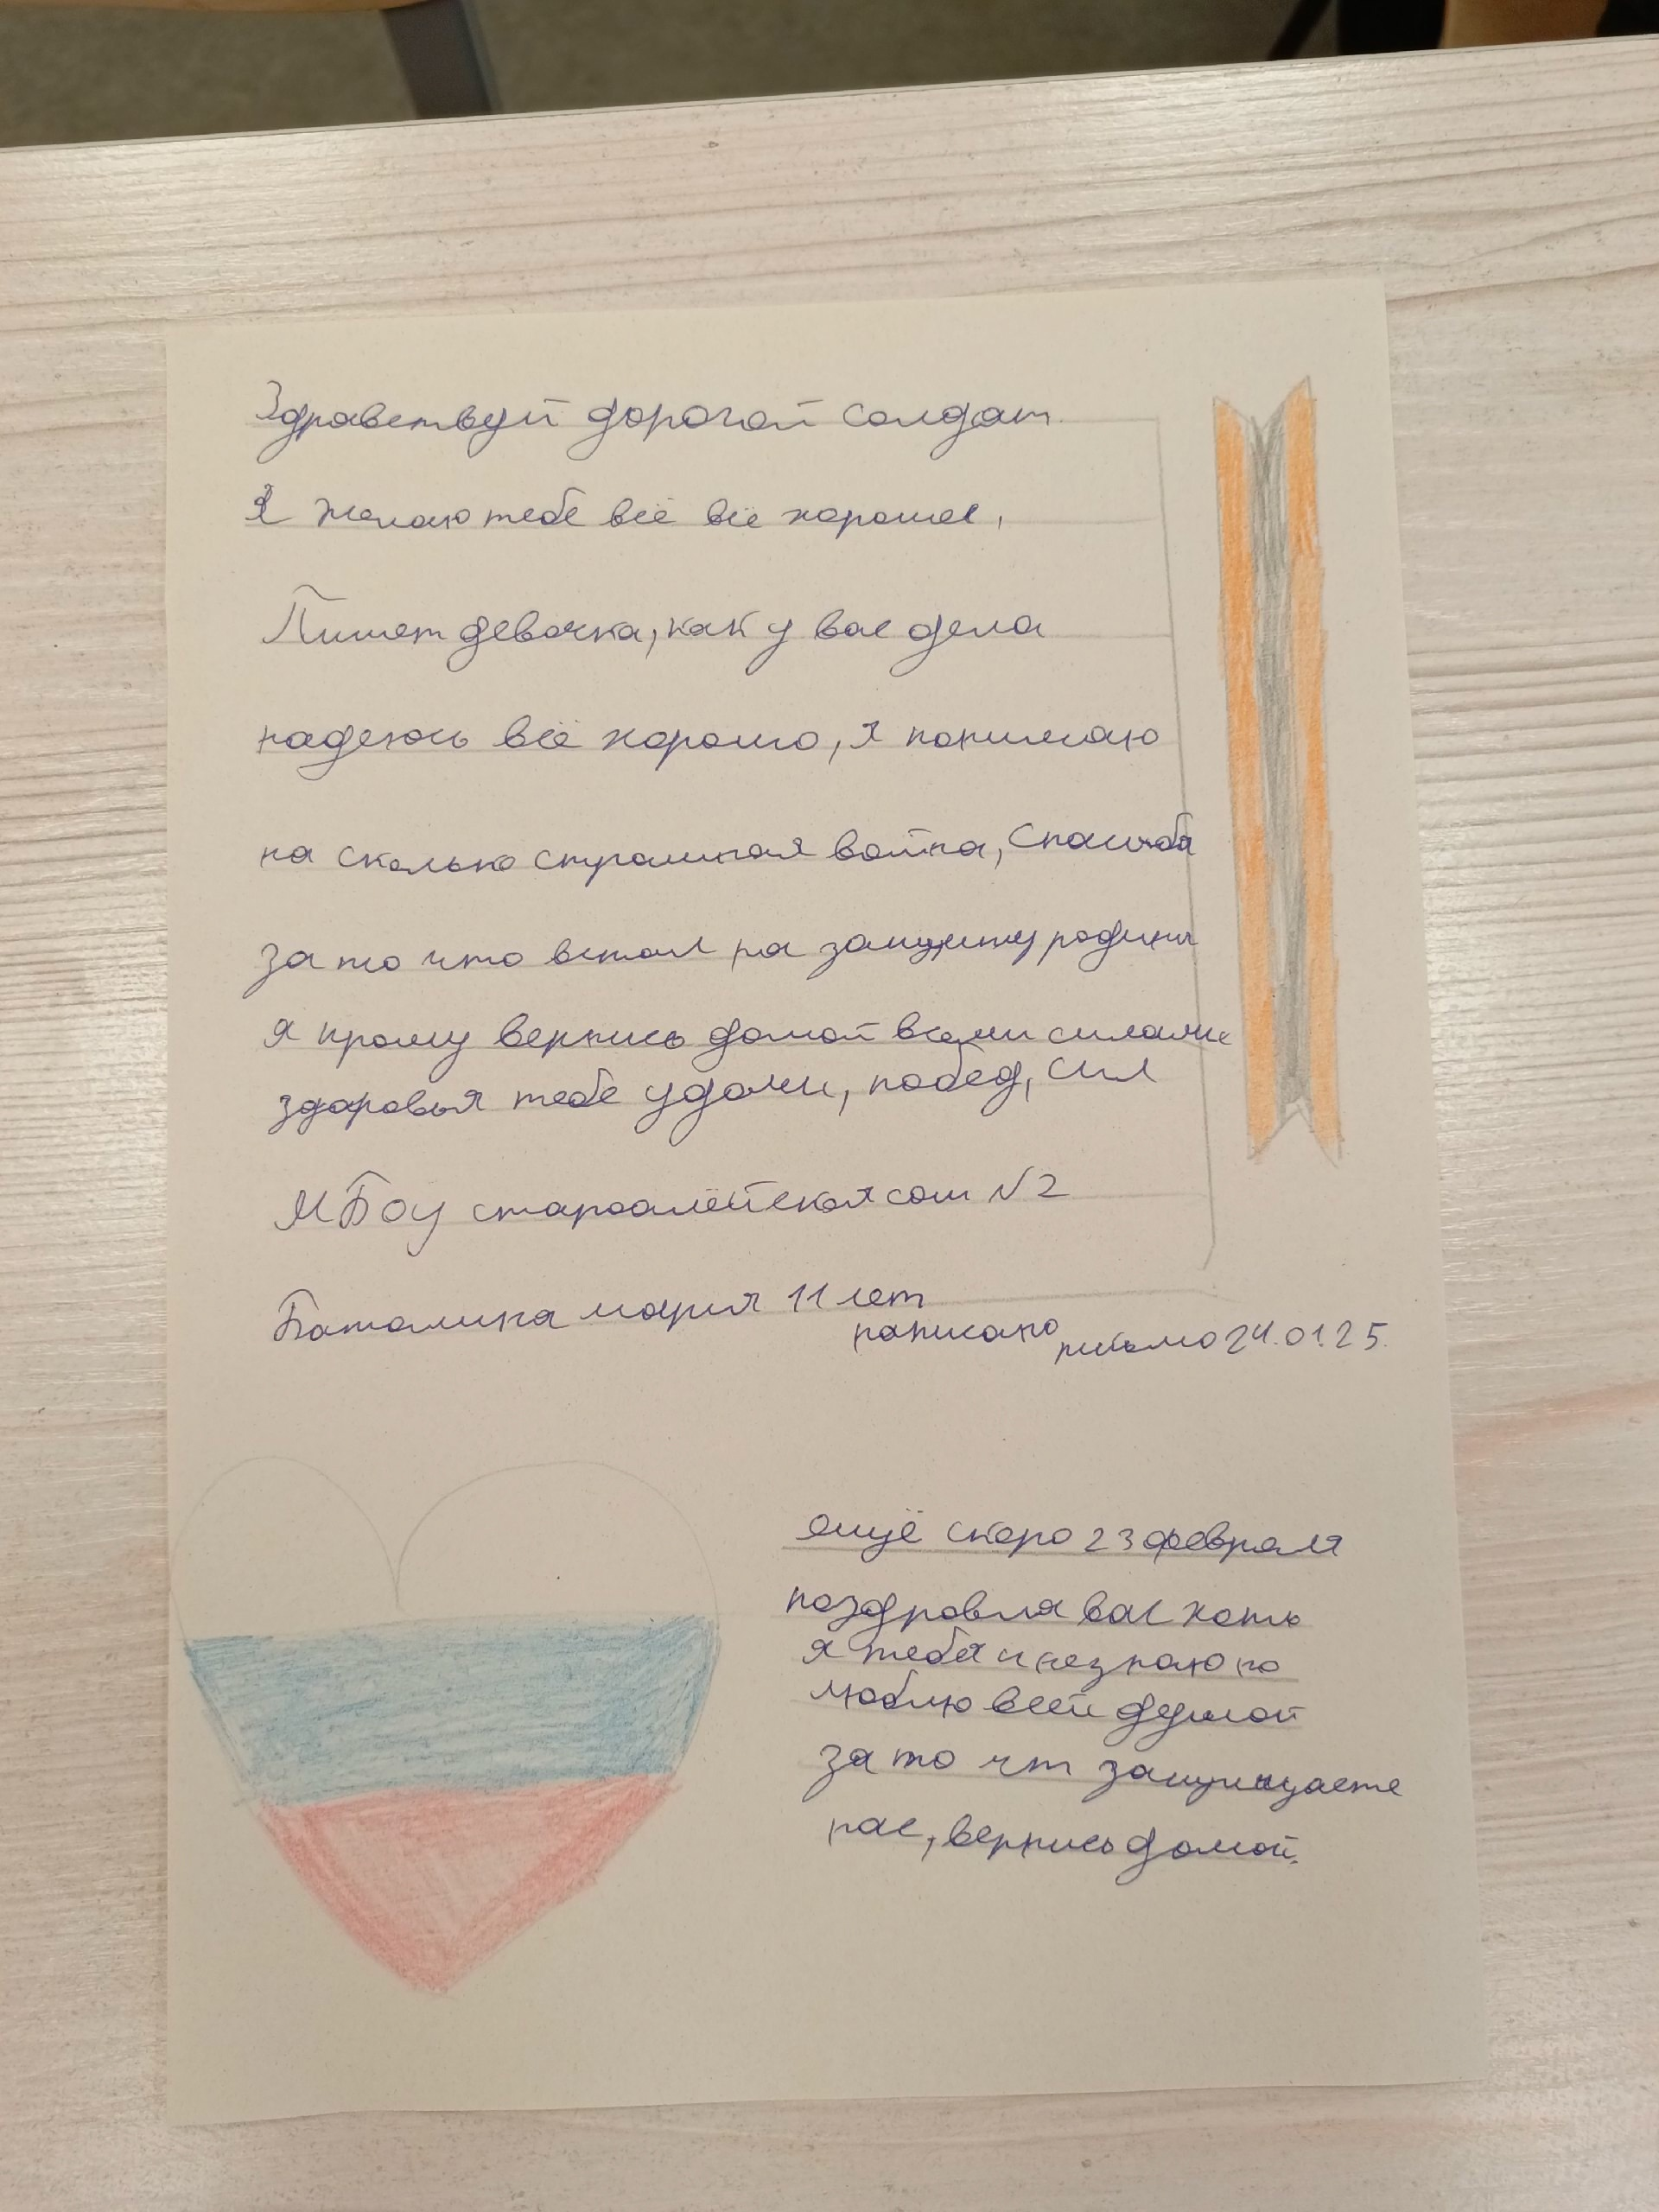 Здравствуй дорогой солдат.
Я желаю тебе всё всё хорошее,
Пишет девочка, как у вас дела
надеюсь всё хорошо, я понимаю
на сколько страшная война, Спасибо
за то что встал на защиту родины
я прошу вернись домой всеми силами
здоровья тебе удачи, побед, сил
МБОУ староалейская сош N2
Баталина мария 11 лет
написано письмо 24.01.25.
ещё скоро 23 февраля
поздровля вас хоть
я тебя и незнаю но
люблю всей душой
за то чт защищаете
нас, вернись домой.